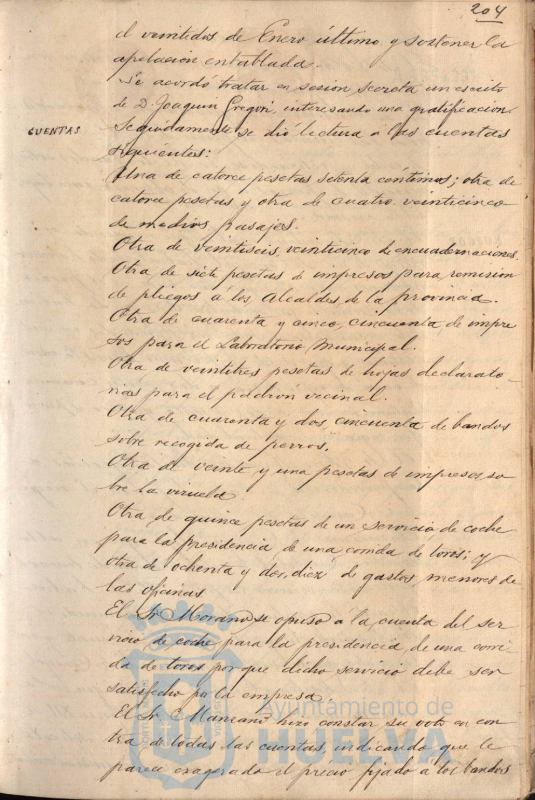 204
el veintidos de Enero último y sostener la
apelacion entablada.
Se acordó tratar en sesion secreta un escrito
de D. Joaquin Gregori, interesando una gratificacion.
CUENTAS
Seguidamente se dió lectura a las cuentas
siguientes:
Una de catorce pesetas setenta céntimos; otra de
catorce pesetas y otra de cuatro veinticinco
de medios pasajes.
Otra de veintiseis, veinticinco de encuadernaciones.
Otra de siete pesetas de impresos para remision
de pliegos á los Alcaldes de la provincia.
Otra de cuarenta y cinco, cincuenta de impre
sos para el Laboratorio Municipal.
Otra de veintitres pesetas de hojas declarato-
rias para el padrón vecinal.
Otra de cuarenta y dos, cincuenta de bandos
sobre recogida de perros.
Otra de veinte y una pesetas de impresos so
bre la viruela
Otra de quince pesetas de un servicio de coche
para la presidencia de una corrida de toros; y
otra de ochenta y dos, diez de gastos menores de
las oficinas
El Sr. Morano se opuso á la cuenta del ser
vicio de coche para la presidencia de una corri
da de toros porque dicho servicio debe ser
satisfecho por la empresa.
El Sr. Manzano hizo constar su voto en con
tra de todas las cuentas, indicando que le
parece exagerado el précio fijado a los bandos
Ayuntamiento de
HUELVA